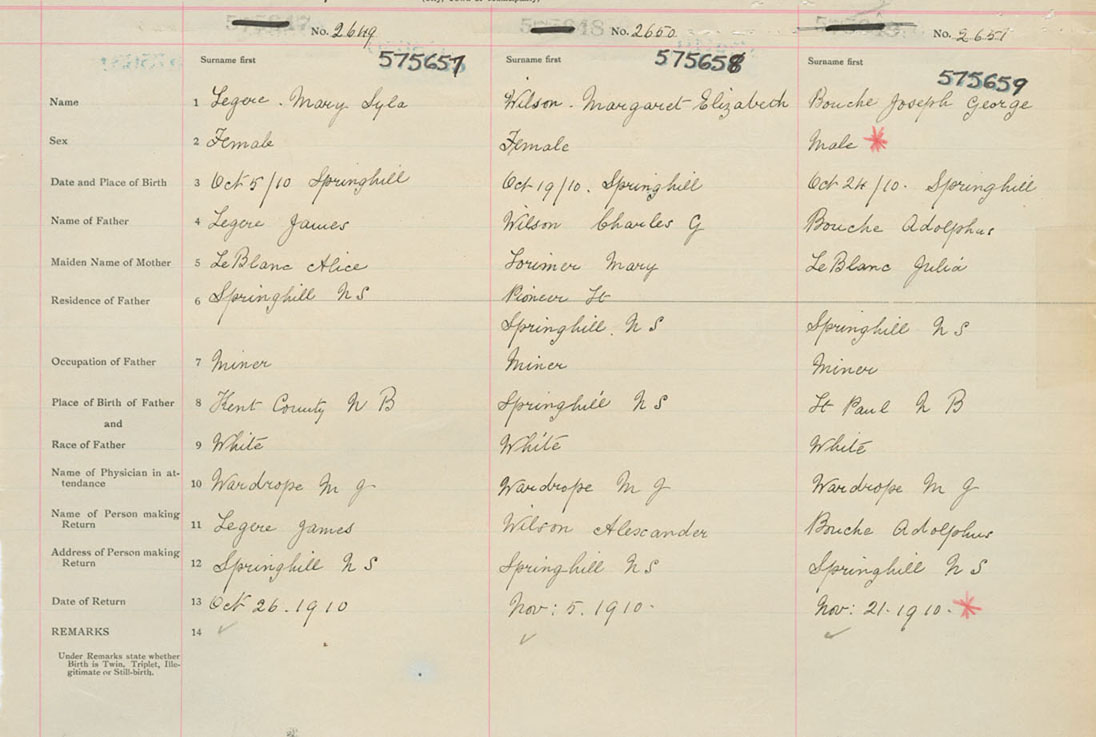 No. 2649
No. 2650
No. 2651
575657
575658
575659
Surname first
Surname first
Surname first
Name 1 Legere . Mary Lyla
Wilson . Margaret Elizabeth
Bouche Joseph George
Sex 2 Female
Female
Male *
Date and Place of Birth 3 Oct 5/10 Springhill
Oct 19/10. Springhill
Oct 24/10. Springhill
Name of Father 4 Legere James
Wilson Charles G
Bouche Adolphus
Maiden Name of Mother 5 LeBlanc Alice
Lorimer Mary
LeBlanc Julia
Residence of Father 6 Springhill N S
Pioneer St
Springhill. N S
Springhill N S
Occupation of Father 7 Miner
Miner
Miner
Place of Birth of Father 8 Kent County N B
Springhill N S
St Paul N B
and
Race of Father 9 White
White
White
Name of Physician in at-
tendance 10 Wardrope M J
Wardrope M J
Wardrope M J
Name of Person making
Return 11 Legere James
Wilson Alexander
Bouche Adolphus
Address of Person making
Return 12 Springhill N S
Springhill N S
Springhill N S
Date of Return 13 Oct 26.1910
Nov: 5.1910.
Nov: 21.1910. *
REMARKS 14
Under Remarks state whether
Birth is Twin, Triplet, Ille-
gitimate or Still-birth.